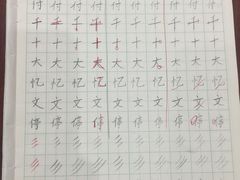 付 付 付 付 付 付 付 付 付 付
千 千 千 千 千 千 千 千 千 千
十 十 十 十 十 十 十 十 十 十
大 大 大 大 大 大 大 大 大 大
忆 忆 忆 忆 忆 忆 忆 忆 忆 忆
文 文 文 文 文 文 文 文 文 文
停 停 停 停 停 停 停 停 停 停